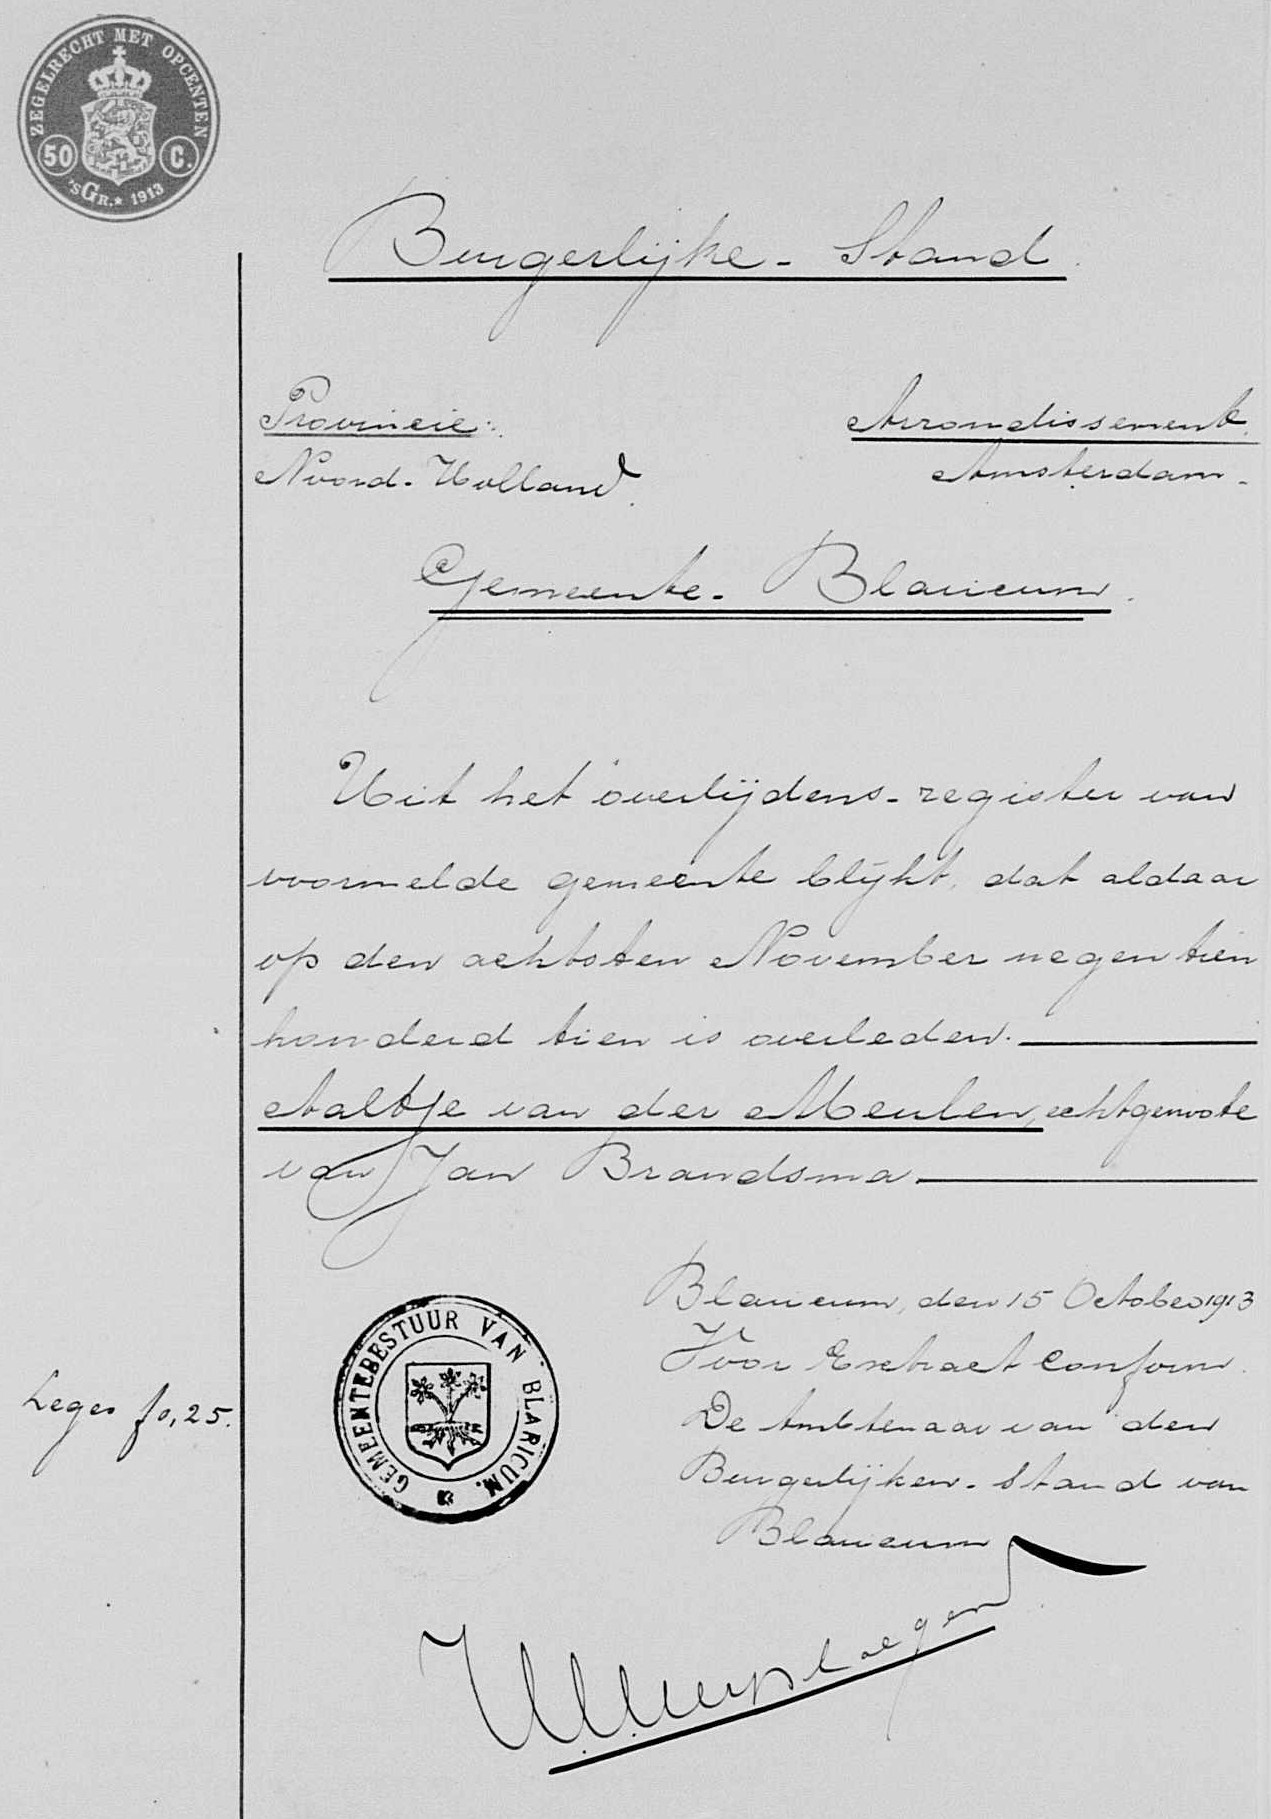 ZEGELRECHT MET OPCENTEN
50 C.
'sGR.* 1913
Burgerlijke - Stand.
Provincie:
Noord-Holland.
Arrondissement.
Amsterdam.
Gemeente - Blaricum.
Uit het overlijdens-register van
voormelde gemeente blijkt, dat aldaar
op den achtsten November negentien
honderd tien is overleden.
Aaltje van der Meulen, echtgenoote
van Jan Brandsma.
Blaricum, den 15 October 1913
Voor Extract conform.
De Ambtenaar van den
Burgerlijken-Stand van
Blaricum
GEMEENTEBESTUUR VAN BLARICUM.
Leges f 0,25.